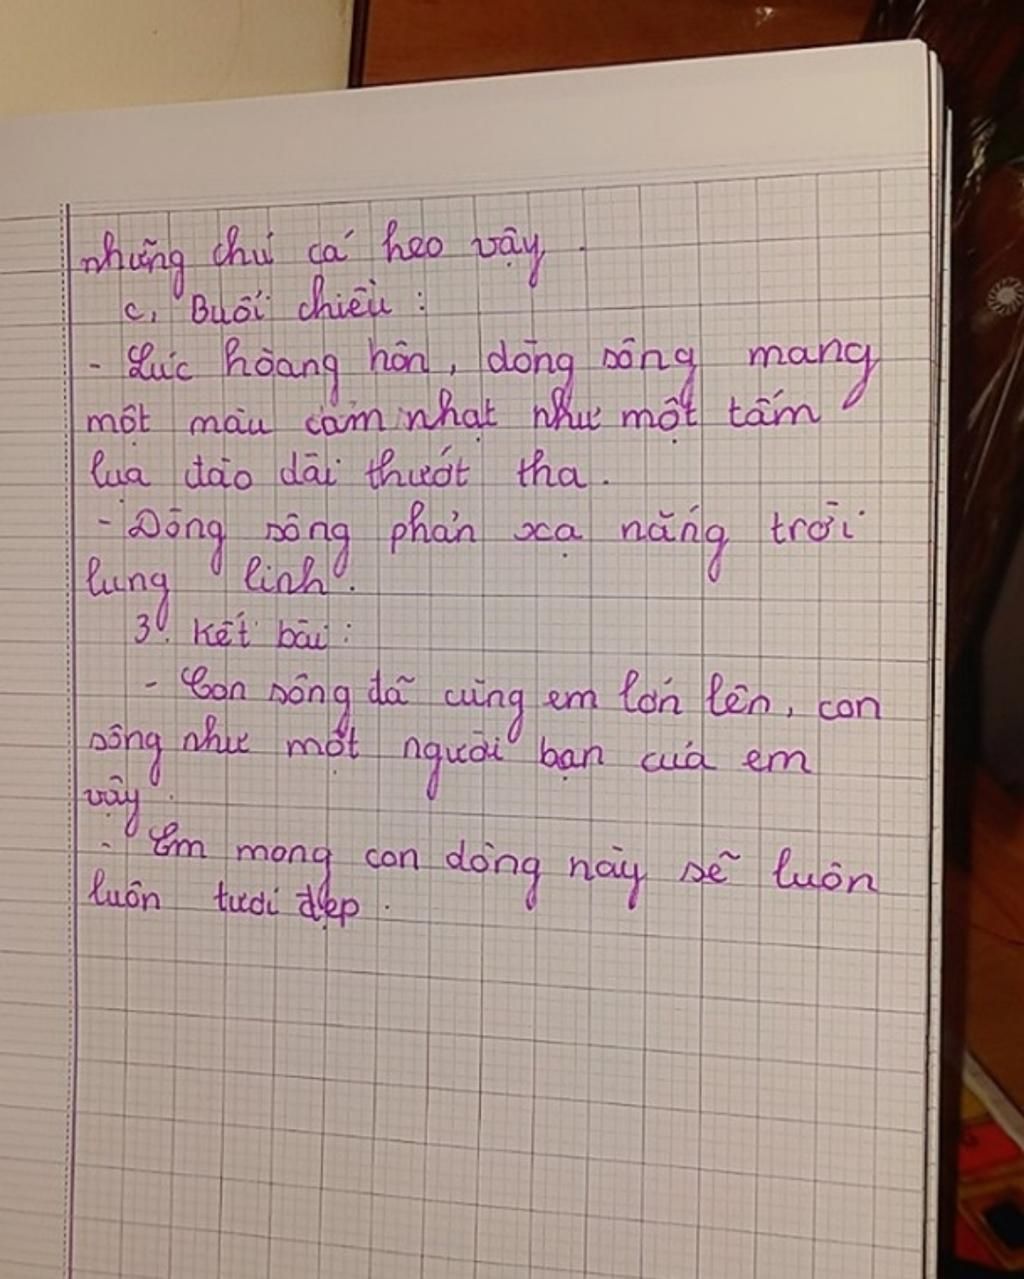 những chú cá heo vậy.
c, Buổi chiều :
- Lúc hoàng hôn, dòng sông mang
một màu cam nhạt như một tấm
lụa đào dài thướt tha.
- Dòng sông phản xạ nắng trời
lung linh.
3. Kết bài :
- Con sông đã cùng em lớn lên, con
sông như một người bạn của em
vậy.
- Em mong con dòng này sẽ luôn
luôn tươi đẹp.